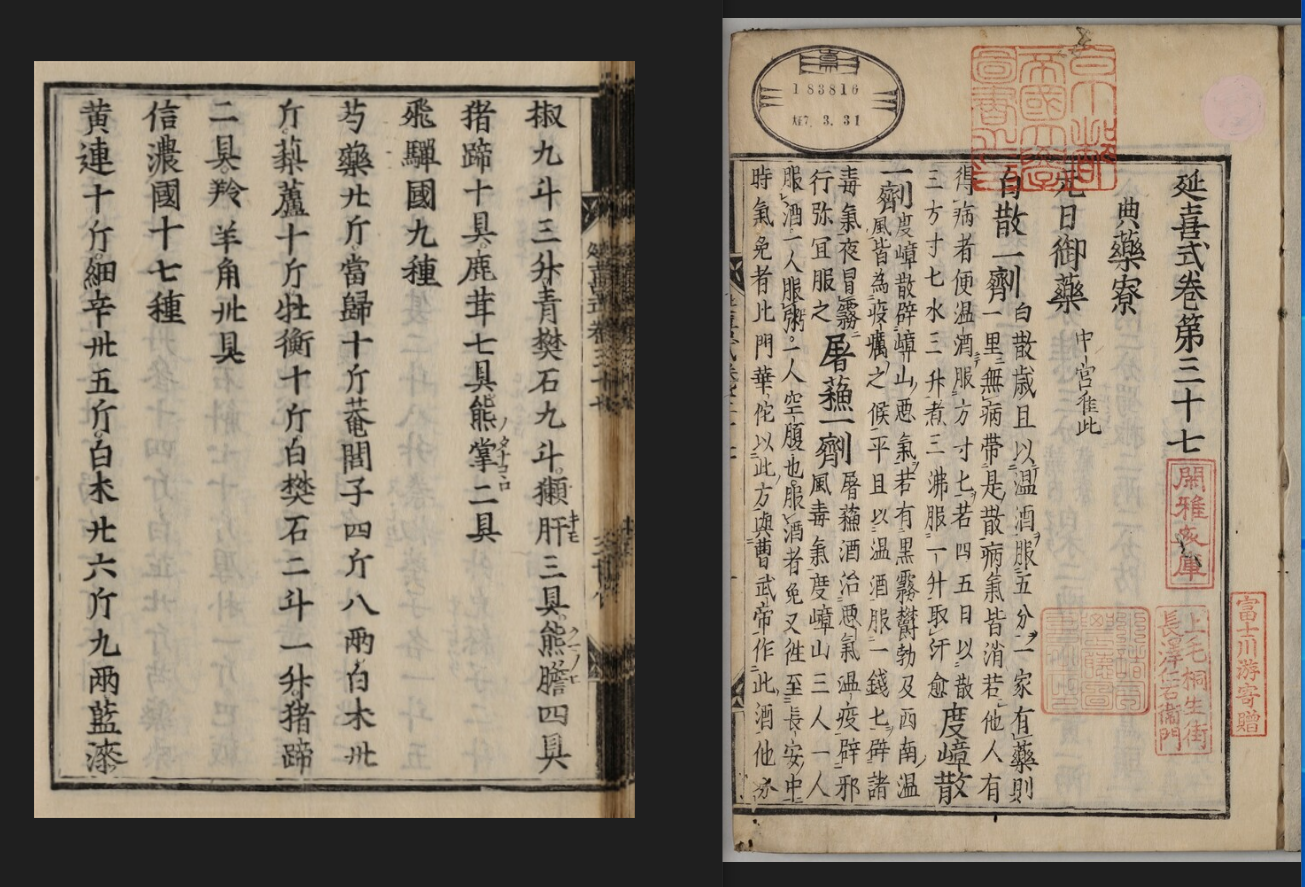 延喜式卷第三十七
典藥寮
元日御藥 中宮准此
白散一劑 白散歳且以温酒服五分一家有藥則
一里無病帯是散病氣皆消若他人有
得病者便温酒服方寸七若四五日以散
三方寸七水三升煮三沸服一升取汗愈
度嶂散
一劑 度嶂散辟嶂山悪氣若有黒霧欝勃及西南温
風皆為疫癘之候平且以温酒服一錢七辟諸
毒氣夜冒霧
行弥宜服之
屠蘓一劑 屠蘓酒治悪氣温疫辟邪
風毒氣度嶂山三人一人
服酒一人服粥一人空腹也服酒者免又徃至長安中
時氣免者此門華佗以此方與曹武帝作此酒他亦
183816
大正7. 3. 31
富士川游寄贈
上毛桐生街
長澤仁右衞門
椒九斗三升青樊石九斗獺肝三具熊膽四具
猪蹄十具鹿茸七具熊掌二具
飛驒國九種
芍藥廾斤當歸十斤菴閭子四斤八兩白木卅
斤藜蘆十斤牡衡十斤白樊石二斗一升猪蹄
二具羚羊角卅具
信濃國十七種
黄連十斤細辛卅五斤白木廾六斤九兩藍漆